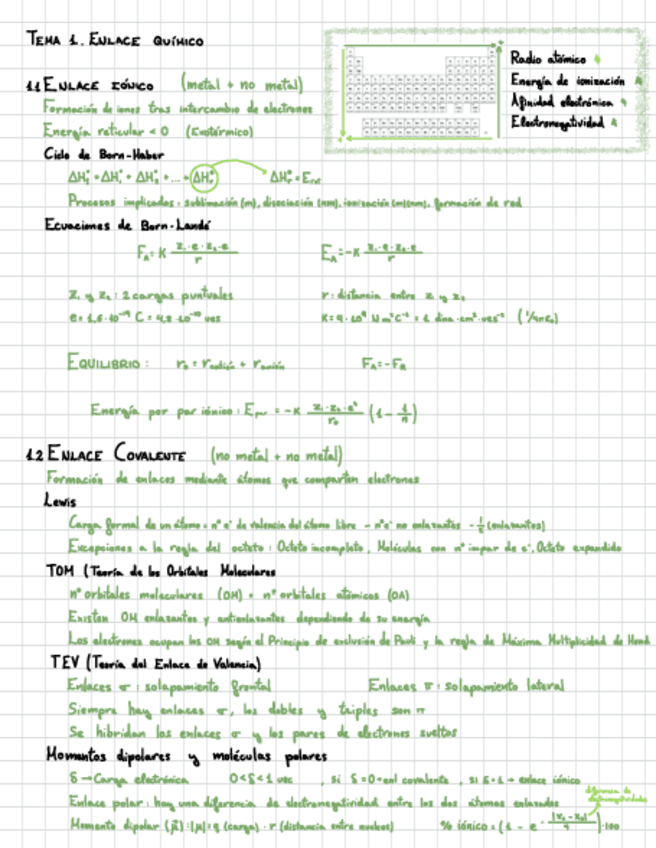 TEMA 1. ENLACE QUÍMICO
Radio atómico
Energía de ionización
Afinidad electrónica
Electronegatividad
1.1 ENLACE IÓNICO (metal + no metal)
Formación de iones tras intercambio de electrones
Energía reticular < 0 (Exotérmico)
Ciclo de Born-Haber
Procesos implicados: sublimación (m), disociación (nm), ionización (m)(nm), formación de red
Ecuaciones de Born-Landé
Z₁ y Z₂: 2 cargas puntuales r: distancia entre Z₁ y Z₂
EQUILIBRIO: F_A = -F_R
Energía por par iónico:
1.2 ENLACE COVALENTE (no metal + no metal)
Formación de enlaces mediante átomos que comparten electrones
Lewis
Carga formal de un átomo = nº e⁻ de valencia del átomo libre - nº e⁻ no enlazantes - ½ (enlazantes)
Excepciones a la regla del octeto: Octeto incompleto, Moléculas con nº impar de e⁻, Octeto expandido
TOM (Teoría de los Orbitales Moleculares
nº orbitales moleculares (OM) = nº orbitales atómicos (OA)
Existen OM enlazantes y antienlazantes dependiendo de su energía
Los electrones ocupan los OM según el Principio de exclusión de Pauli y la regla de Máxima Multiplicidad de Hund
TEV (Teoría del Enlace de Valencia)
Enlaces σ: solapamiento frontal Enlaces π: solapamiento lateral
Siempre hay enlaces σ, los dobles y triples son π
Se hibridan los enlaces σ y los pares de electrones sueltos
Momentos dipolares y moléculas polares
δ → Carga electrónica 0<δ<1
Enlace polar: hay una diferencia de electronegatividad entre los dos átomos enlazados
diferencia de electronegatividades
Momento dipolar (μ⃗): |μ| = q (carga) · r (distancia entre núcleos) % iónico =